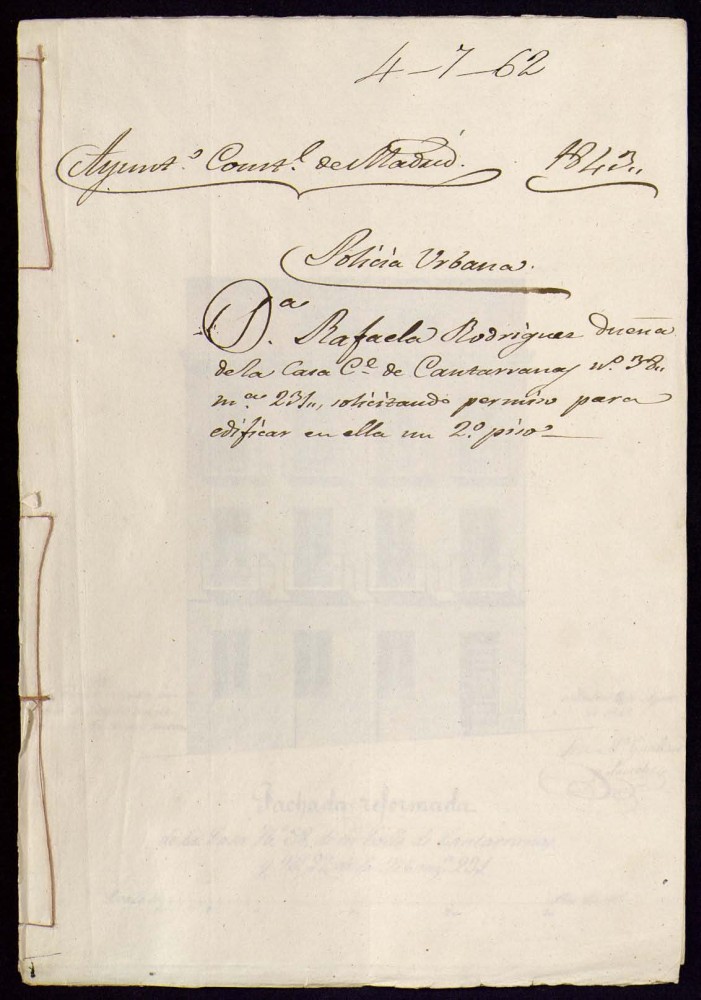 4-7-62
Ayunt.º Const.l de Madrid. 1843,,
Policia Urbana.
D.ª Rafaela Rodriguez dueña
de la Casa C.e de Cantarranas nº 38,,
m.na 231,, solicitando permiso para
edificar en ella un 2.º piso
Fachada reformada
de la Casa Nº 38 de la Calle de Cantarranas